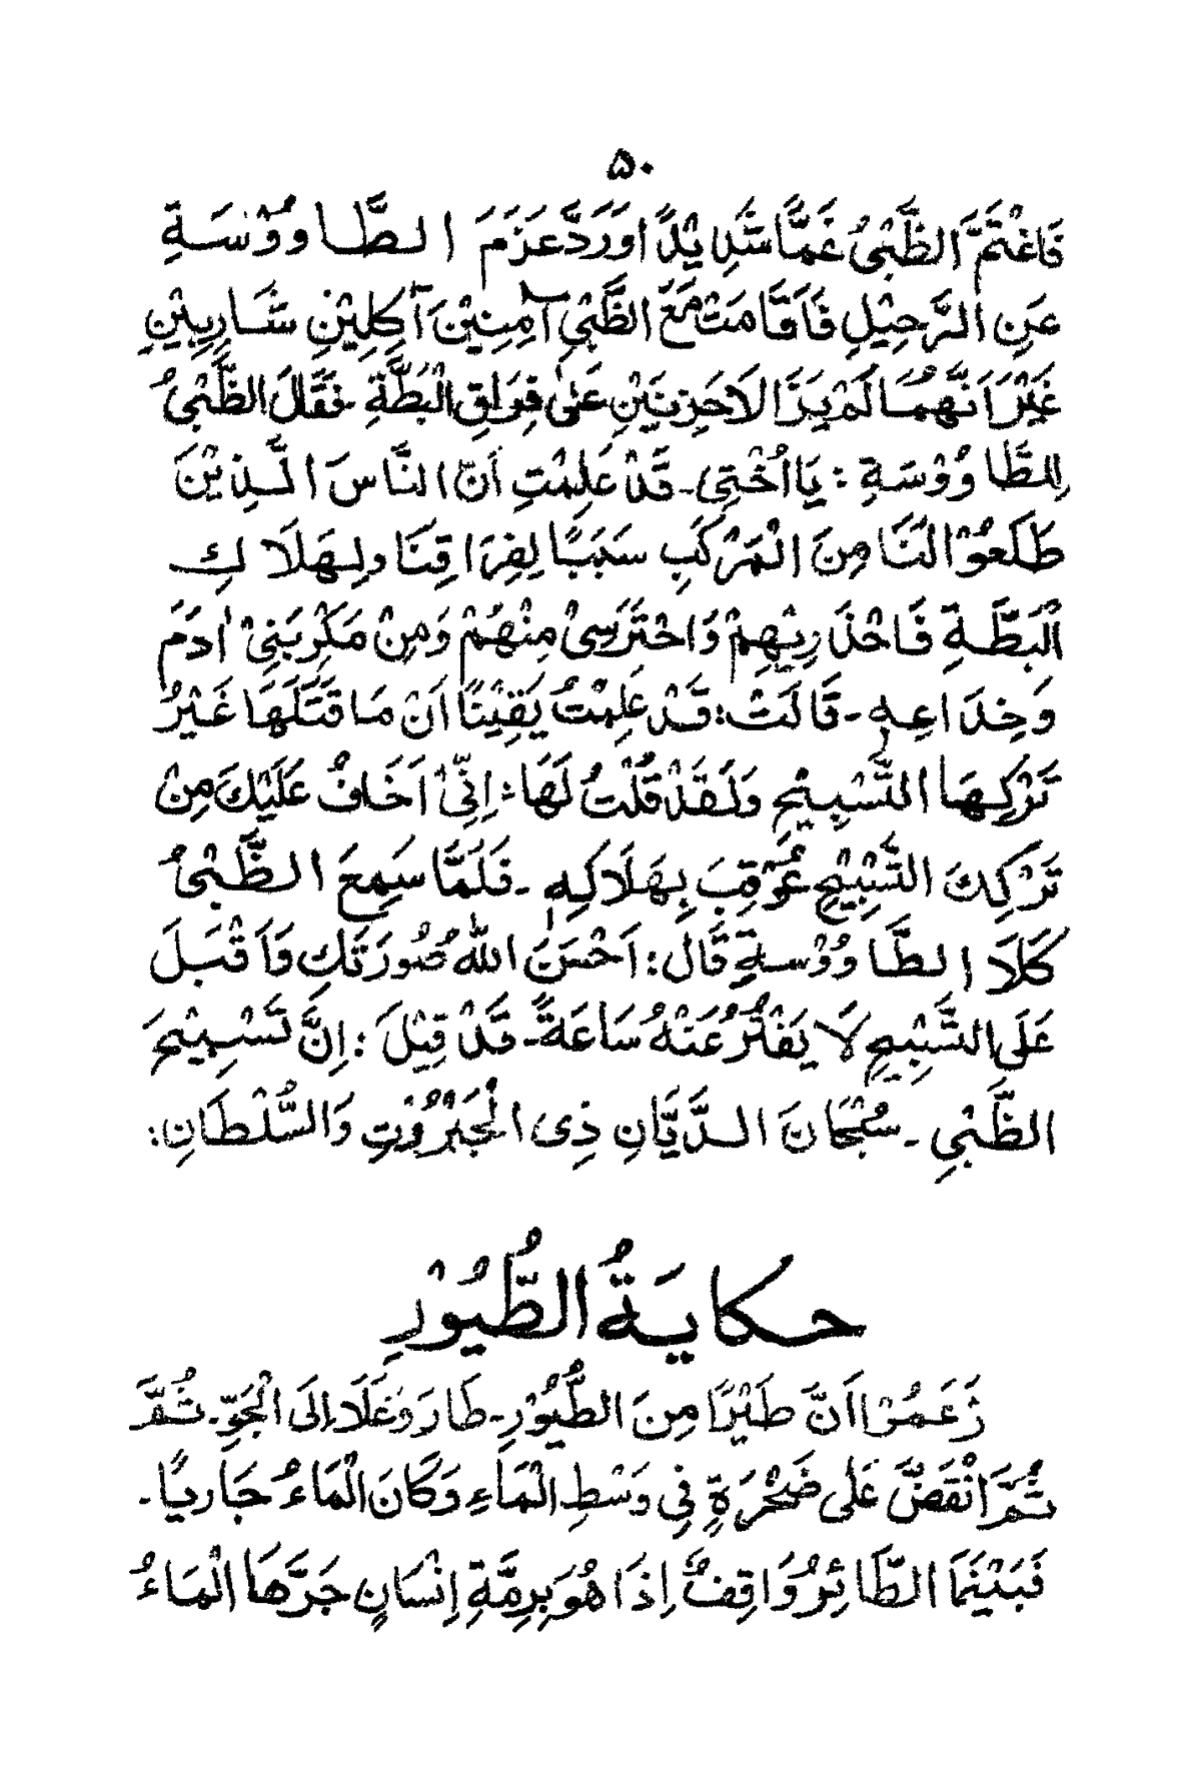 ۵۰
فَاغْتَمَّ الظَّبْيُ غَمًّا شَدِيْدًا وَرَدَّ عَزَمَ الطَّاوُوْسَةِ
عَنِ الرَّحِيْلِ فَاَقَامَتْ مَعَ الظَّبْيِ آمِنِيْنَ آكِلِيْنِ شَارِبِيْنِ
غَيْرَ اَنَّهُمَا لَمْ يَزَالَا حَزِيْنَيْنِ عَلٰى فِرَاقِ الْبَطَّةِ۔ فَقَالَ الظَّبْيُ
لِلطَّاوُوْسَةِ : يَا اُخْتِي۔ قَدْ عَلِمْتِ اَنَّ النَّاسَ الَّذِيْنَ
طَلَعُوْا لَنَا مِنَ الْمَرْكَبِ سَبَبًا لِفِرَاقِنَا وَلِهَلَاكِ
الْبَطَّةِ فَاحْذَرِيْهِمْ وَاحْتَرَسِىْ مِنْهُمْ وَمِنْ مَكْرِ بَنِىْ اٰدَمَ
وَخِدَاعِهٖ۔ قَالَتْ: قَدْ عَلِمْتُ يَقِيْنًا اَنْ مَا قَتَلَهَا غَيْرُ
تَرْكِهَا التَّسْبِيْحِ وَلَقَدْ قُلْتُ لَهَا: اِنِّىْ اَخَافُ عَلَيْكَ مِنْ
تَرْكِكَ التَّسْبِيْحِ عُوْقِبَ بِهَلَاكِهٖ۔ فَلَمَّا سَمِعَ الظَّبْىُ
كَلَاَ الطَّاوُوْسَةِ قَالَ: اَحْسَنَ اللّٰهُ صُوْرَتَكِ وَاَقْبَلَ
عَلَى التَّسْبِيْحِ لَا يَفْتُرُ عَنْهُ سَاعَةً۔ قَدْ قِيْلَ : اِنَّ تَسْبِيْحَ
الظَّبْيِ۔ سُبْحَانَ الدَّيَّانِ ذِى الْجَبْرُوْتِ وَالسُّلْطَانِ:
حكايةُ الطُّيُوْرِ
زَعَمُوْا اَنَّ طَيْرًا مِنَ الطُّيُوْرِ۔ طَارَ وَعَلَا اِلَى الْجَوِّ۔ ثُمَّ
ثُمَّ انْقَضَّ عَلٰى صَخْرَةٍ فِي وَسْطِ الْمَاءِ وَكَانَ الْمَاءُ جَارِيًا۔
فَبَيْنَمَا الطَّائِرُ وَاقِفٌ اِذَا هُوَ بِرِمَّةِ اِنْسَانٍ جَرَّهَا الْمَاءُ